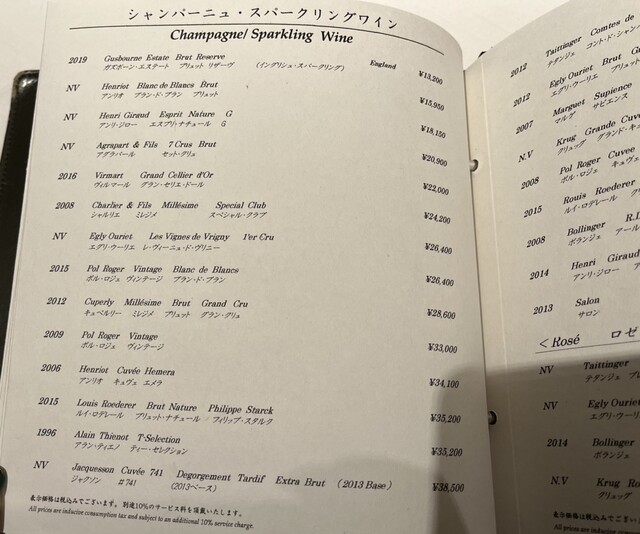 シャンパーニュ・スパークリングワイン
Champagne/ Sparkling Wine
2019 Gusbourne Estate Brut Reserve England ¥13,200
ガズボーン・エステート ブリュット リザーヴ (イングリシュ・スパークリング)
NV Henriot Blanc de Blancs Brut ¥15,950
アンリオ ブラン・ド・ブラン ブリュット
NV Henri Giraud Esprit Nature G ¥18,150
アンリ・ジロー エスプリ・ナチュール G
NV Agrapart & Fils 7 Crus Brut ¥20,900
アグラパール セット・クリュ
2016 Virmart Grand Cellier d'Or ¥22,000
ヴィルマール グラン・セリエ・ドール
2008 Charlier & Fils Millésime Special Club ¥24,200
シャルリエ ミレジメ スペシャル・クラブ
NV Egly Ouriet Les Vignes de Vrigny 1'er Cru ¥26,400
エグリ・ウーリエ レ・ヴィーニュ・ド・ヴリニー
2015 Pol Roger Vintage Blanc de Blancs ¥26,400
ポル・ロジェ ヴィンテージ ブラン・ド・ブラン
2012 Cuperly Millésime Brut Grand Cru ¥28,600
キュペルリー ミレジメ ブリュット グラン・クリュ
2009 Pol Roger Vintage ¥33,000
ポル・ロジェ ヴィンテージ
2006 Henriot Cuvée Hemera ¥34,100
アンリオ キュヴェ エメラ
2015 Louis Roederer Brut Nature Philippe Starck ¥35,200
ルイ・ロデレール ブリュット・ナチュール / フィリップ・スタルク
1996 Alain Thienot T-Selection ¥35,200
アラン・ティエノ ティー・セレクション
NV Jacquesson Cuvée 741 Degorgement Tardif Extra Brut (2013 Base) ¥38,500
ジャクソン #741 (2013ベース)
表示価格は税込みでございます。別途10%のサービス料を頂戴いたします。
All prices are inclusive consumption tax and subject to an additional 10% service charge.
2012 Taittinger Comtes de
タタンジュ コント・ド・シャン
2012 Egly Ouriet Brut G
エグリ・ウーリエ ブリュ
2007 Marguet Sapience
マルゲ サピエンス
N.V Krug Grande Cuvé
クリュッグ グランド・キュ
2008 Pol Roger Cuvee
ポル・ロジェ キュヴェ
2015 Rouis Roederer
ルイ・ロデレール クリ
2008 Bollinger R.D
ボランジェ アール
2014 Henri Giraud
アンリ・ジロー ア
2013 Salon
サロン
< Rosé ロゼ
NV Taittinger
テタンジュ プレ
NV Egly Ouriet
エグリ・ウーリ
2014 Bollinger
ボランジェ
N.V Krug Ro
クリュッグ